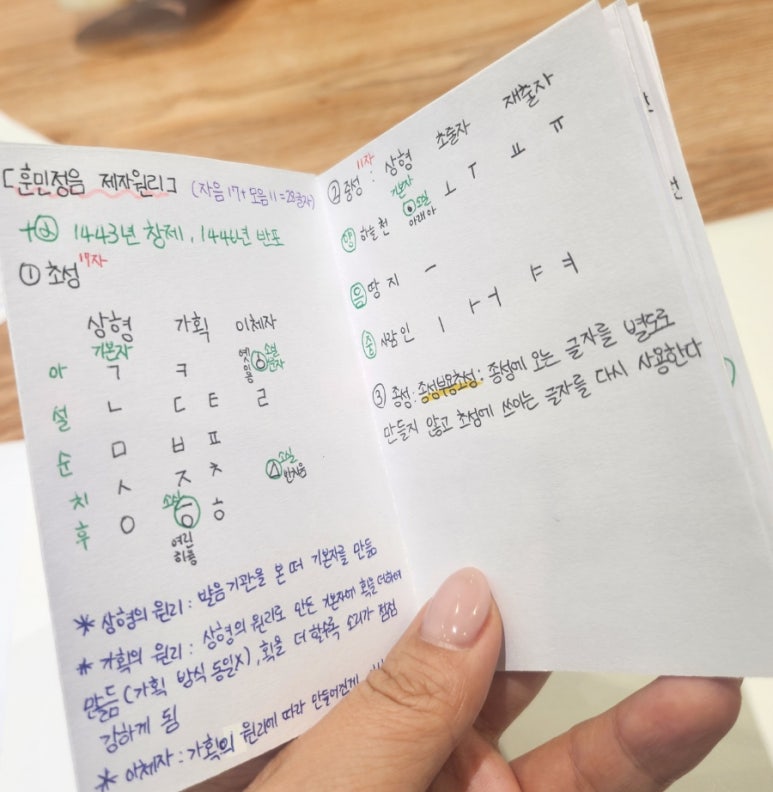 [훈민정음 제자원리] (자음 17 + 모음 11 = 28글자)
1443년 창제, 1446년 반포
① 초성 17자
상형 가획 이체자
기본자
아 ㄱ ㅋ ㆁ 옛이응 소실문자
설 ㄴ ㄷ ㅌ ㄹ
순 ㅁ ㅂ ㅍ
치 ㅅ ㅈ ㅊ ㅿ 소실 반치음
후 ㅇ ㆆ ㅎ
소실 여린히읗
* 상형의 원리 : 발음기관을 본 떠 기본자를 만듦
* 가획의 원리 : 상형의 원리로 만든 기본자에 획을 더하여
만듦 (가획 방식 동일X), 획을 더 할수록 소리가 점점
강하게 됨
* 이체자 : 가획의 원리에 따라 만들어진게
② 중성 11자 : 상형 초출자 재출자
기본자
양 하늘 천 ㆍ 소실 아래아 ㅗ ㅜ ㅛ ㅠ
음 땅 지 ㅡ
중 사람 인 ㅣ ㅏ ㅓ ㅑ ㅕ
③ 종성 : 종성부용초성 : 종성에 오는 글자를 별도로
만들지 않고 초성에 쓰이는 글자를 다시 사용한다